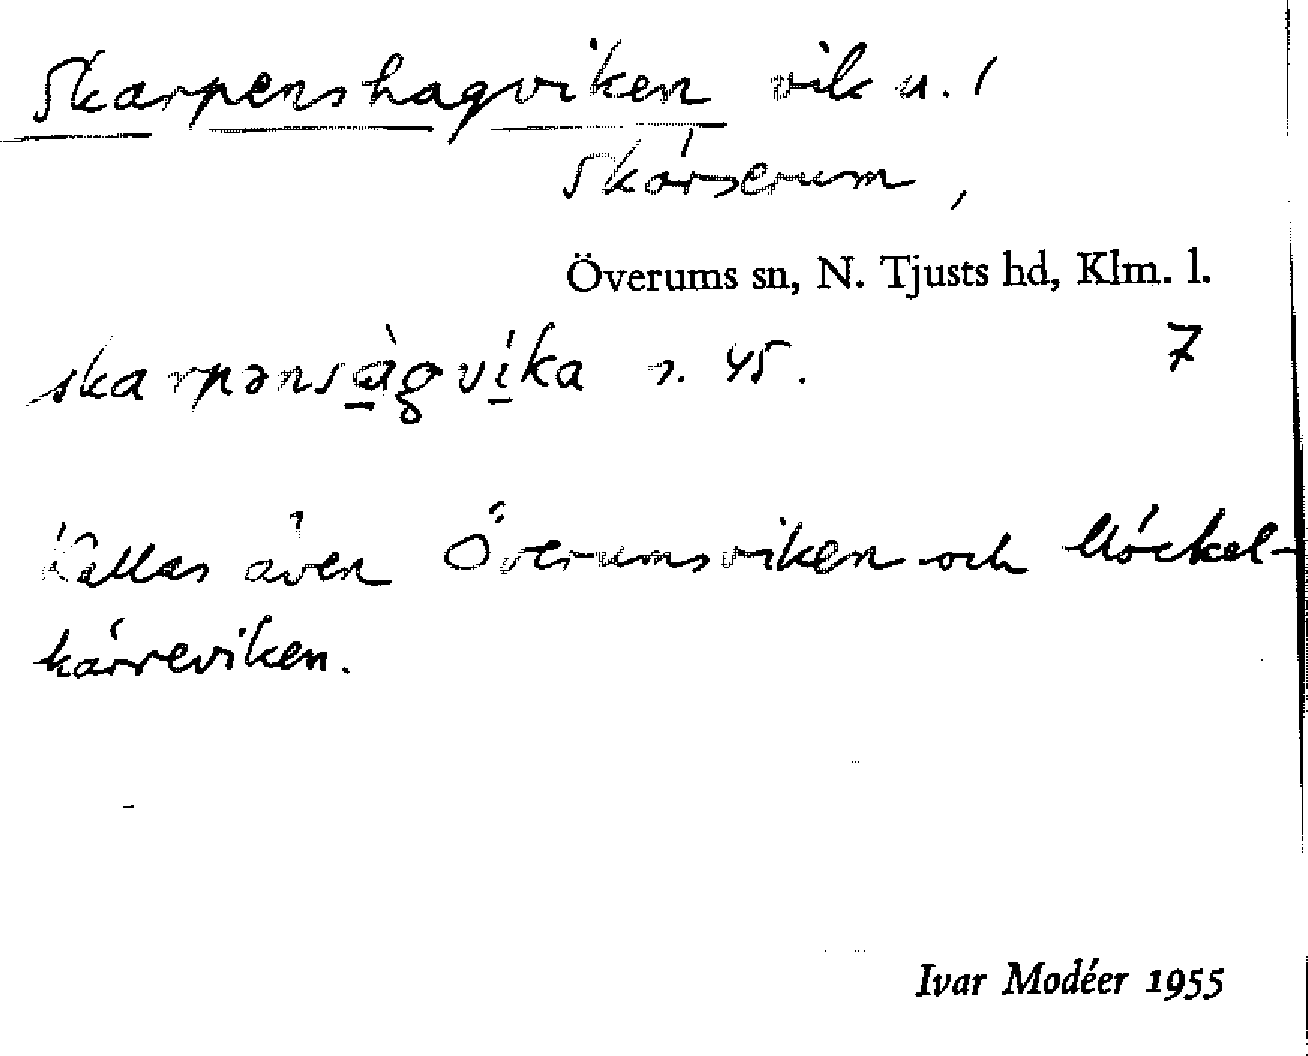 Skarpenshagviken vik u. 1
Skärserum,
Överums sn, N. Tjusts hd, Klm. l.
skarpənsàgvíka s. 45. 7
Kallas även Överumsviken och Möckel-
kärreviken.
Ivar Modéer 1955